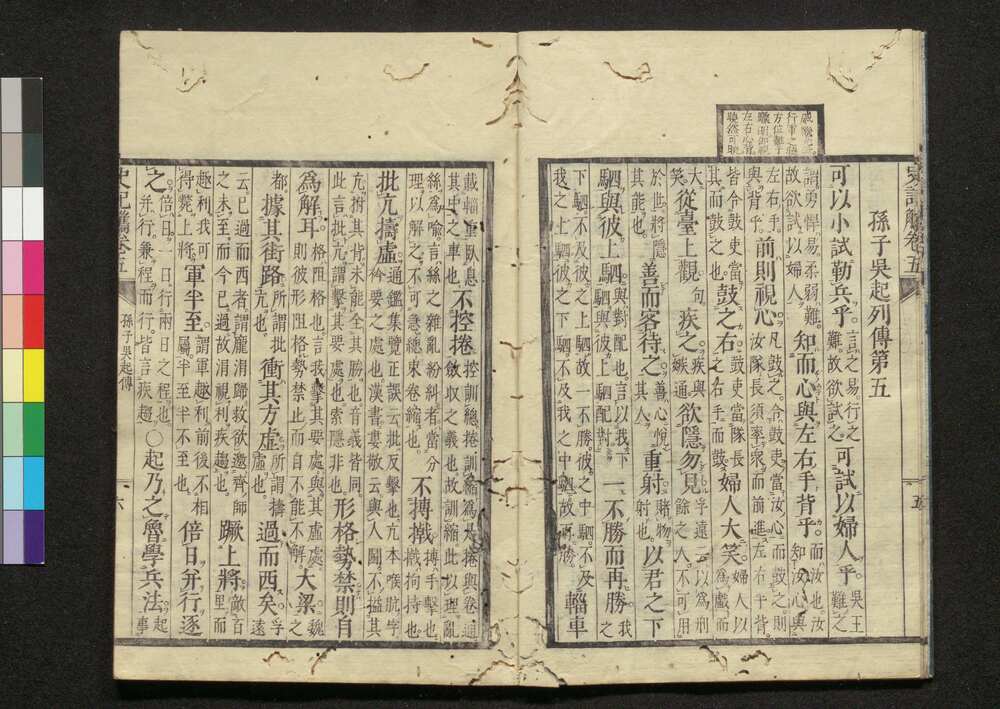 孫子吳起列傳第五
可以小試勒兵乎
難故欲試之
可試以婦人乎
吳王
難之
謂勇悍易柔弱難
故欲試以婦人
知而心與左右手背乎
而汝也
與背乎
前則視心
皆令鼓吏當
其而鼓之也
鼓之右
鼓吏當隊長
之右手而鼓
婦人大笑
婦人以
為戲而
大
笑
從臺上觀
句
疾之
疾與
嫉通
欲隱勿見
於世將隱
其能也
善而客待之
善心悅
其人
重射
賭物
射也
以君之下
駟與彼上駟
駟與對配也言以我下
駟與彼上駟配對
一不勝而再勝
我
之
下駟不及彼之上駟故一不勝彼之中駟不及
我之上駟彼之下駟不及我之中駟故再勝
輜車
載輜重臥息
其中之車也
不控捲
控訓總捲訓縮為是捲與卷通
斂收之義也故訓縮此以理亂
絲為喻言絲之雜亂紛糾者當分
理以解之不可急總束卷縮也
不搏撠
搏手擊也
撠拘持也
批亢擣虛
通鑑集覽正誤云批反擊也亢本喉肮字
衿要之處也漢書婁敬云與人鬪不搤其
亢拊其背未能全其勝也音義皆同
此言批亢謂擊其要處也索隱非也
形格勢禁則自
為解耳
格阻格也言我擊其要處與其虛處
則彼形阻格勢禁止而自不能不解
大梁
魏
之
都
據其街路
所謂批
亢也
衝其方虛
所謂擣
虛也
過而西矣
孚
遠
云已過而西者謂龐涓歸救欲邀齊師
之未至而今已過故涓視利疾趨也
蹶上將
敵百
里而
趣利我可
得斃上將
軍半至
謂軍趣利前後不相
屬半至半不至也
倍日并行逐
之
倍日一日行兩日之程也
并行兼程而行皆言疾趨
○起乃之魯學兵法
起
事
史記觿卷五
孫子吳起傳
五
六